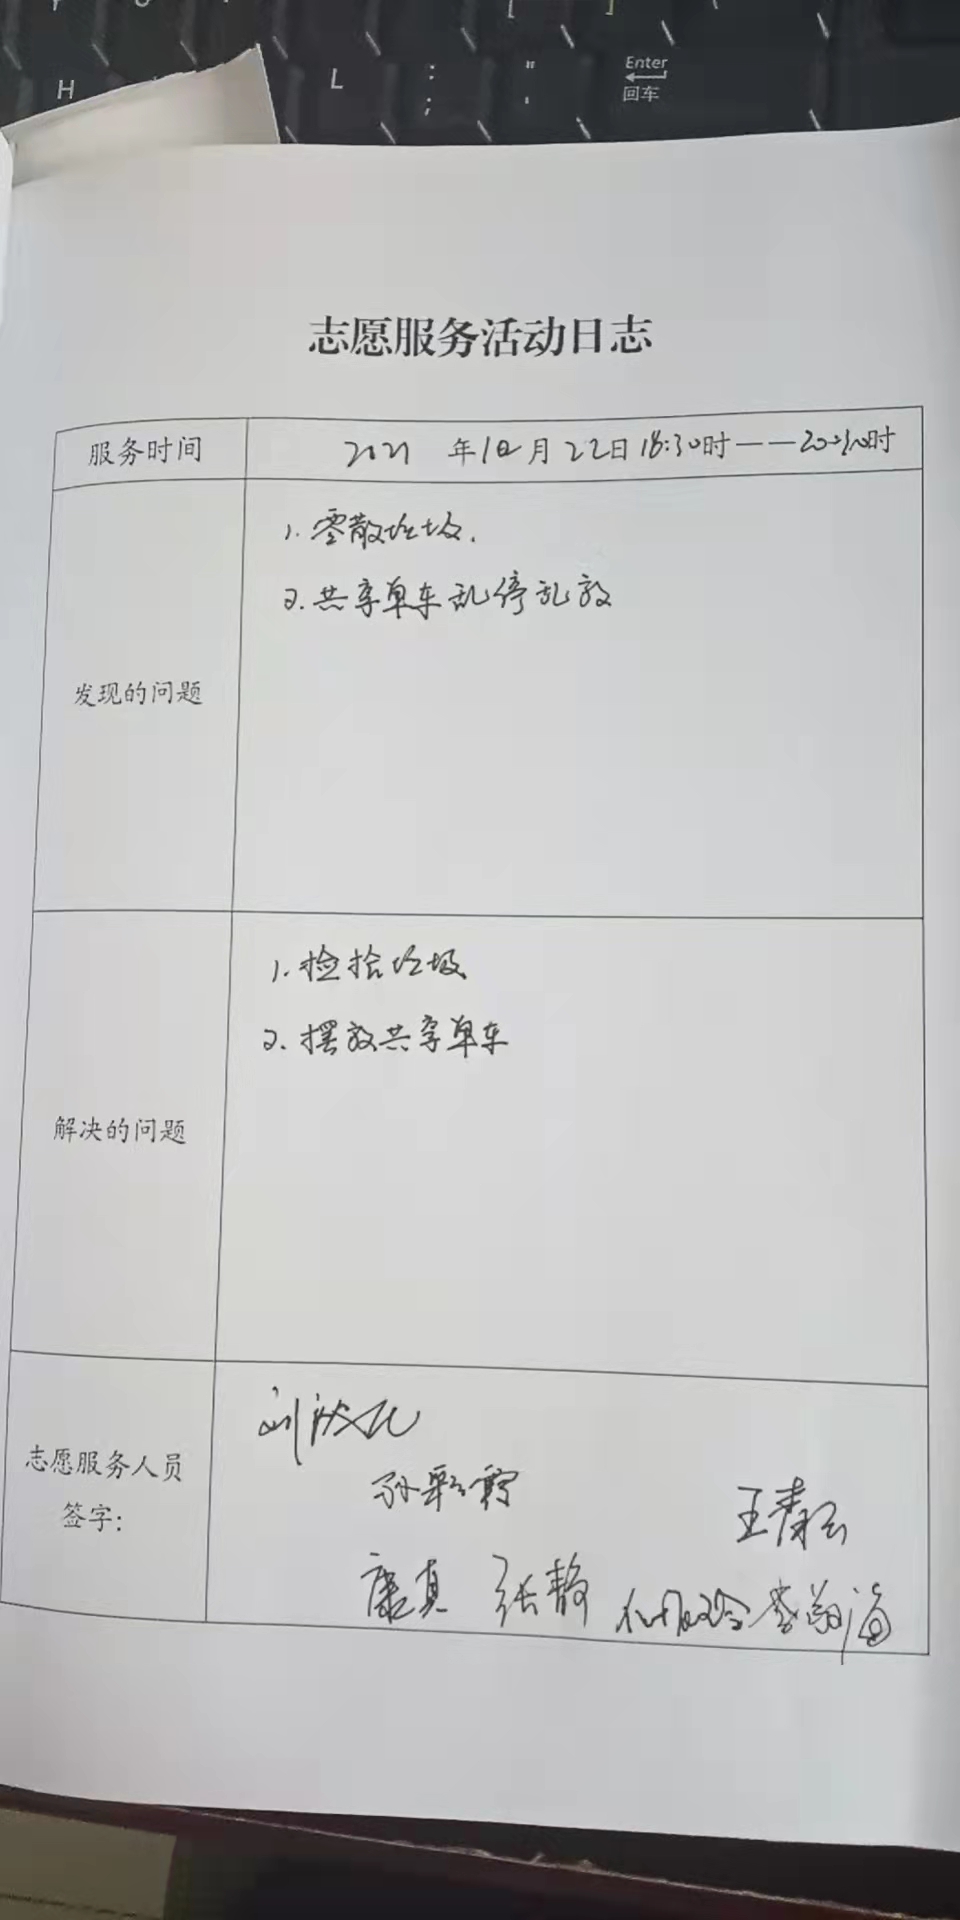 H
L
:
;
"
'
Enter
回车
志愿服务活动日志
服务时间
2021 年10月22日18:30时——20:30时
发现的问题
1. 零散垃圾.
2. 共享单车乱停乱放
解决的问题
1. 捡拾垃圾
2. 摆放共享单车
志愿服务人员
签字:
孙彩霞
王春云
康真 张静